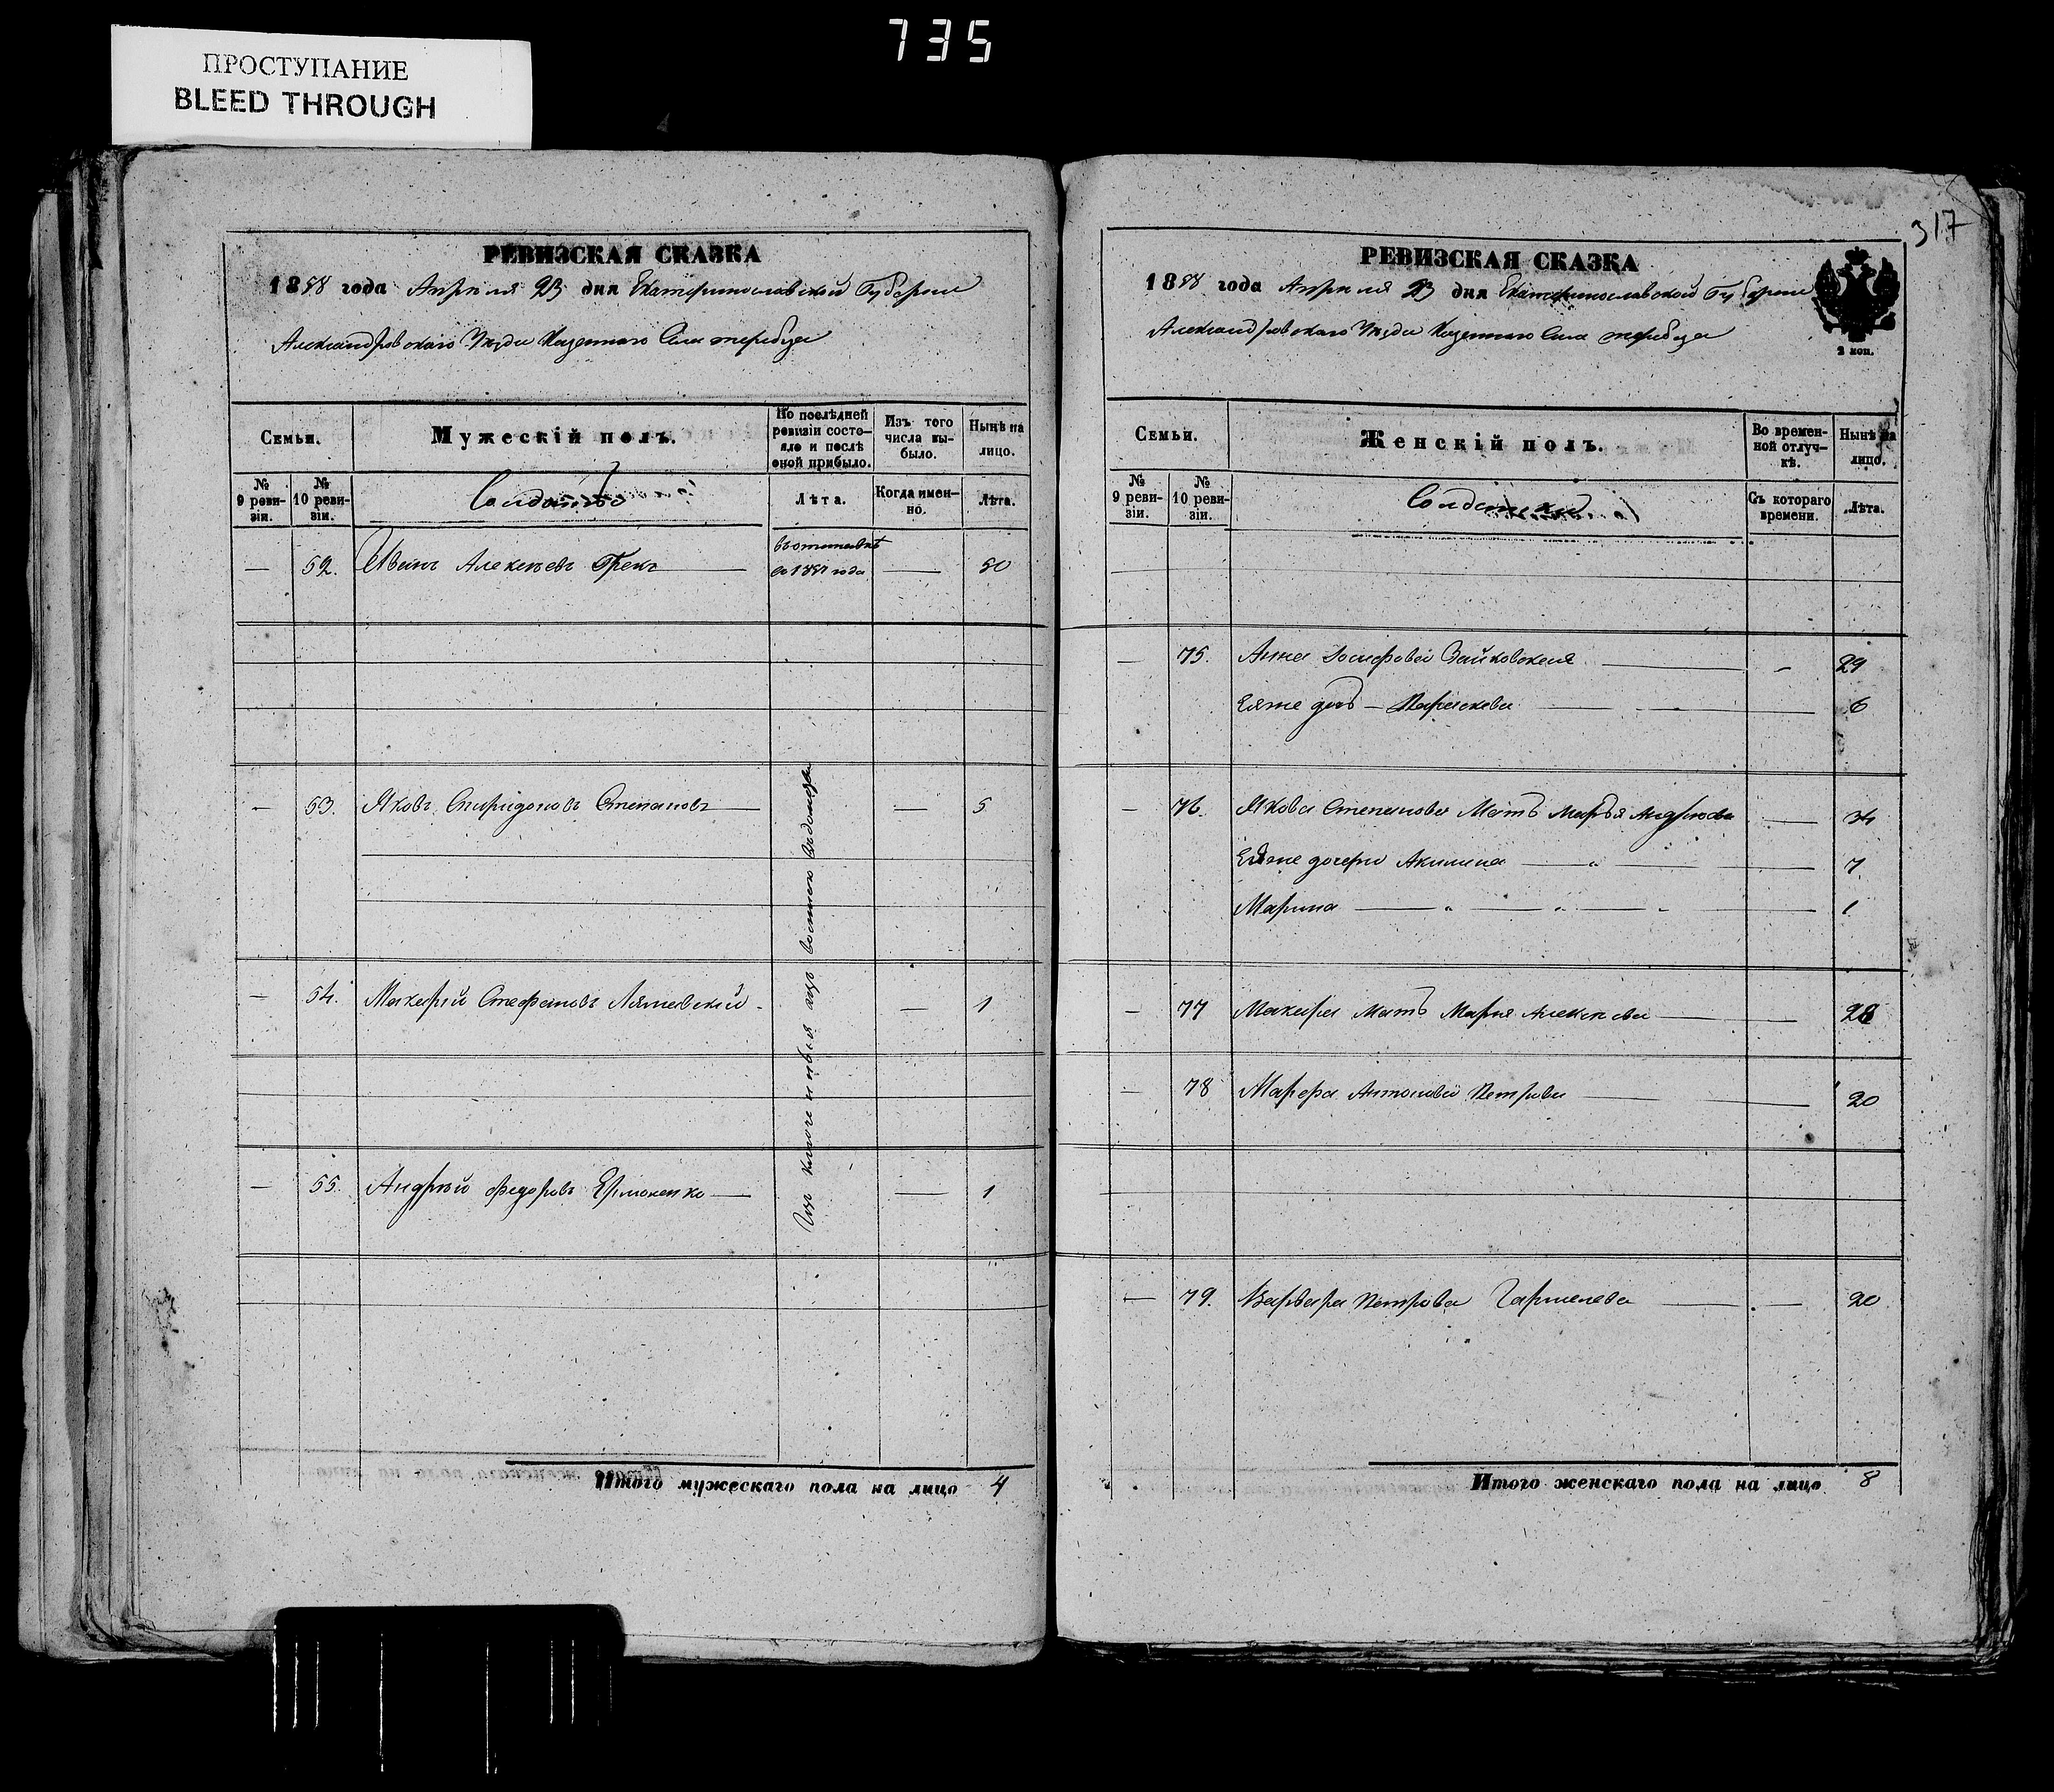 735
ПРОСТУПАНИЕ
BLEED THROUGH
РЕВИЗСКАЯ СКАЗКА
1858 года Апреля 23 дня Екатеринославской Губернии
Александровскаго Уезда Казеннаго Села
Семьи.
Мужескій полъ.
По послѣдней ревизіи состояло и послѣ оной прибыло.
Изъ того числа выбыло.
Нынѣ на лицо.
№ 9 ревизіи.
№ 10 ревизіи.
Лѣта.
Когда именно.
Лѣта.
— 52. Иванъ Алексѣевъ Грекъ — въ отставкѣ — 50
года
— 53. Яковъ Спиридоновъ Степановъ — — 5
— 54. Макарій Стефановъ — 1
— 55. Андрей Федоровъ Ермоленко — — 1
Итого мужескаго пола на лицо 4
317
РЕВИЗСКАЯ СКАЗКА
1858 года Апреля 23 дня Екатеринославской Губернии
Александровскаго Уезда Казеннаго Села
2 коп.
Семьи.
Женскій полъ.
Во временной отлучкѣ.
Нынѣ на лицо.
№ 9 ревизіи.
№ 10 ревизіи.
Солдатки
Съ котораго времени.
Лѣта.
— 75. Анна Зайковская — — 29
Ея же дочь — Параскева — — 6
— 76. Якова Степанова Мать Марья — 34
Ея же дочери Акилина — " — — 7
Марина — " — " — " — 1
— 77 Макара Мать Марья Алексеева — — 28
— 78 Марфа Антонова Петрова — — 20
— 79. Варвара Петрова — — 20
Итого женскаго пола на лицо 8